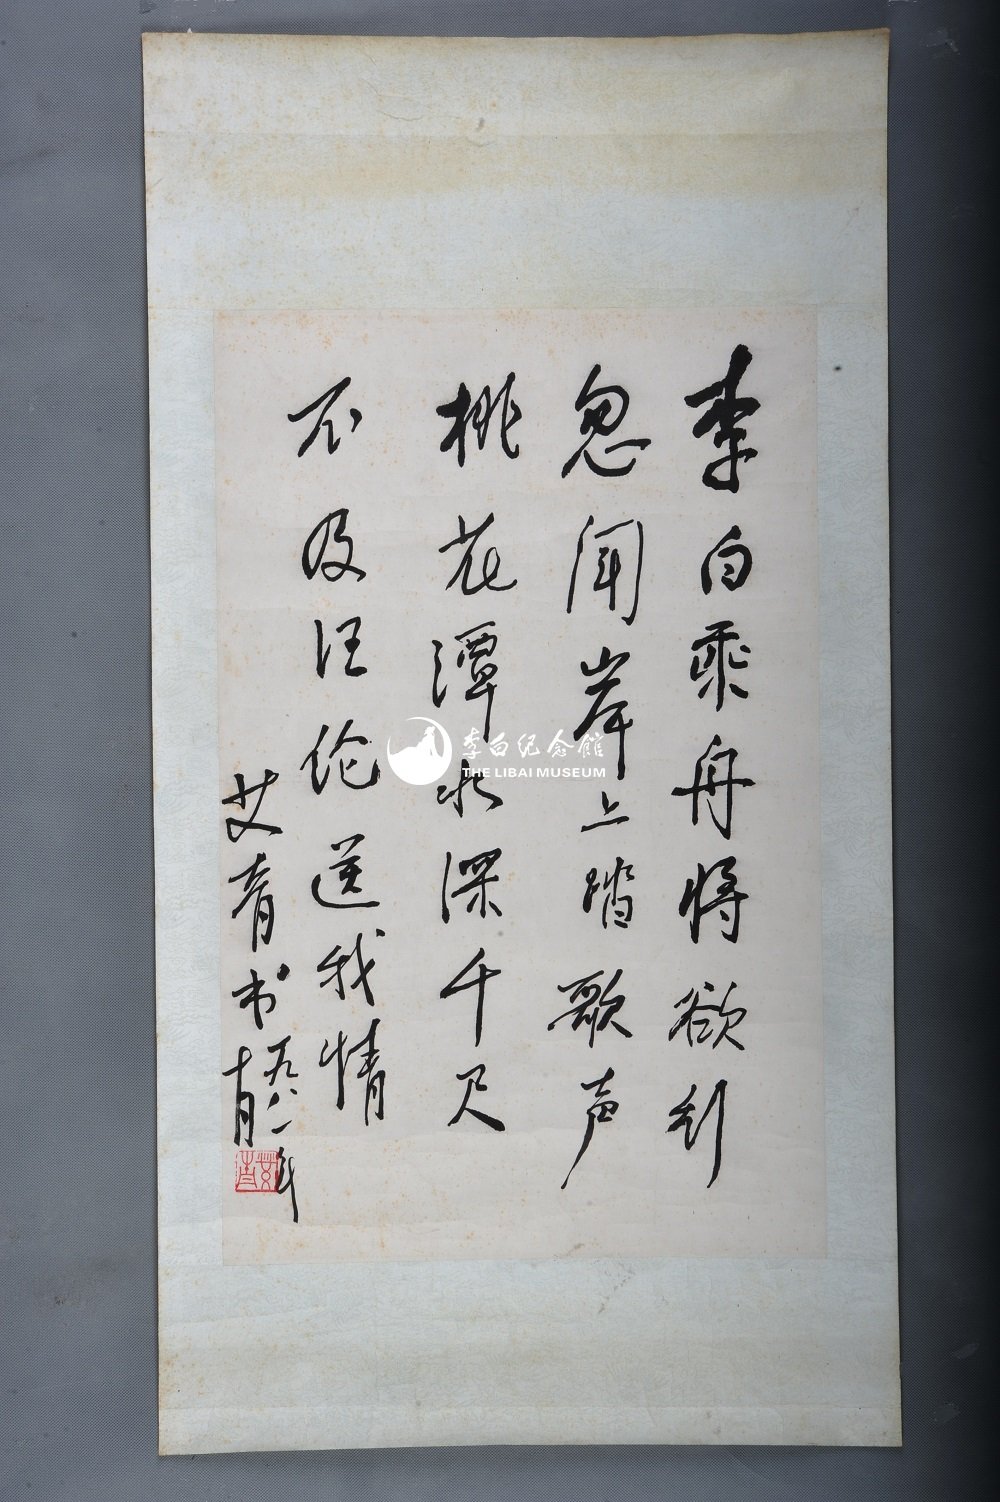 李白乘舟将欲行
忽闻岸上踏歌声
桃花潭水深千尺
不及汪伦送我情
艾青书
一九八一年
十月
艾青
李白纪念館
THE LIBAI MUSEUM